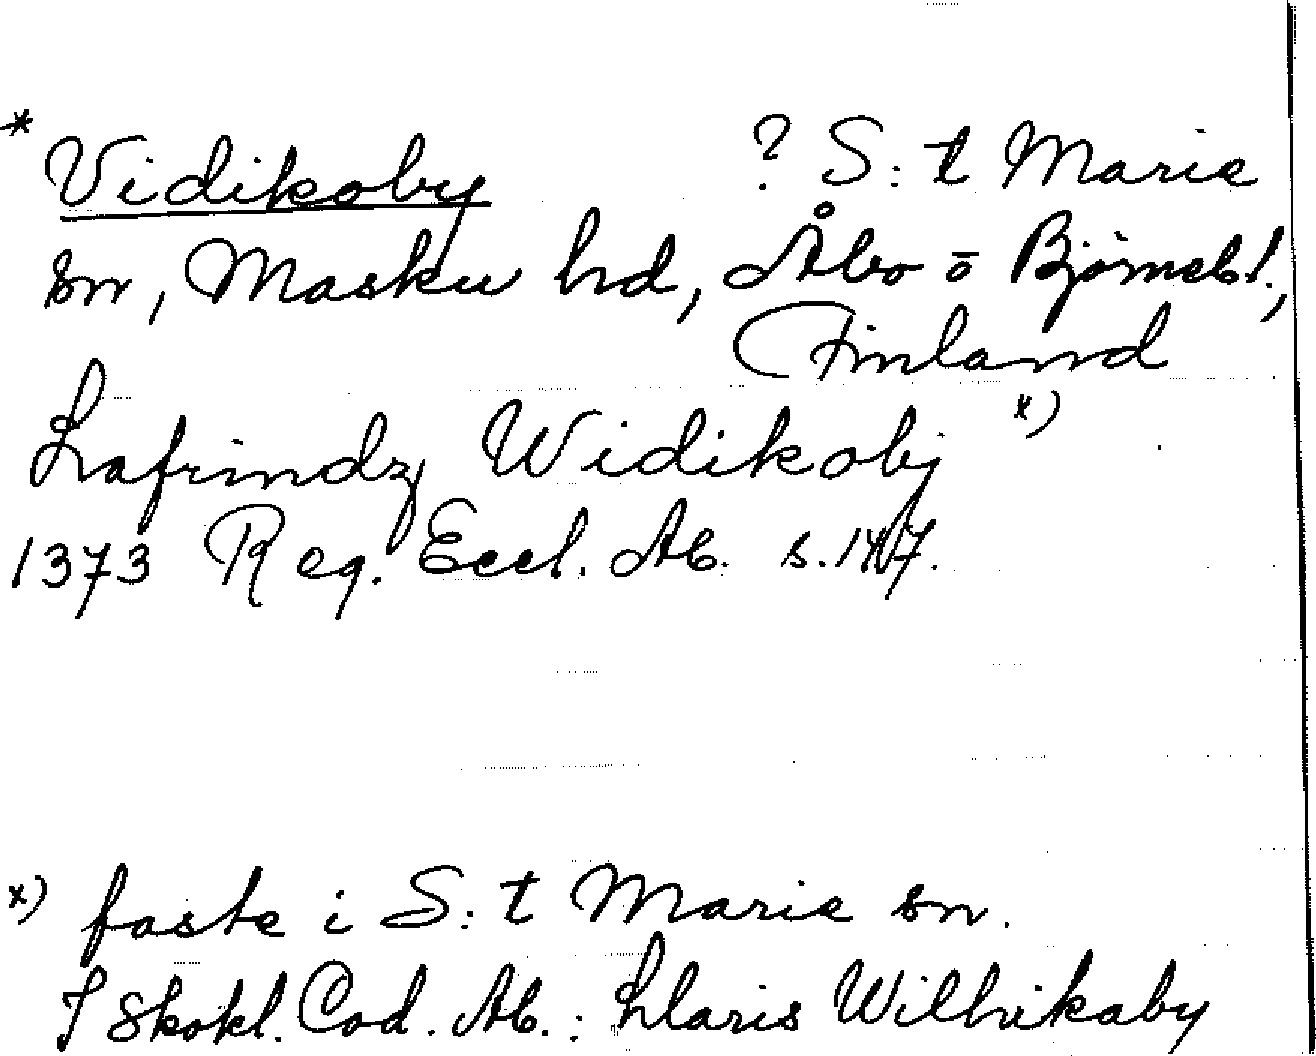 * Vidikoby ? S:t Marie
sn, Masku hd, Åbo o Björneb l.,
Finland
Lafrindz Widikobj x)
1373 Reg. Eccl. Ab. s. 147.
x) faste i S:t Marie sn.
I Skokl. Cod. Ab.: Wilhikaby